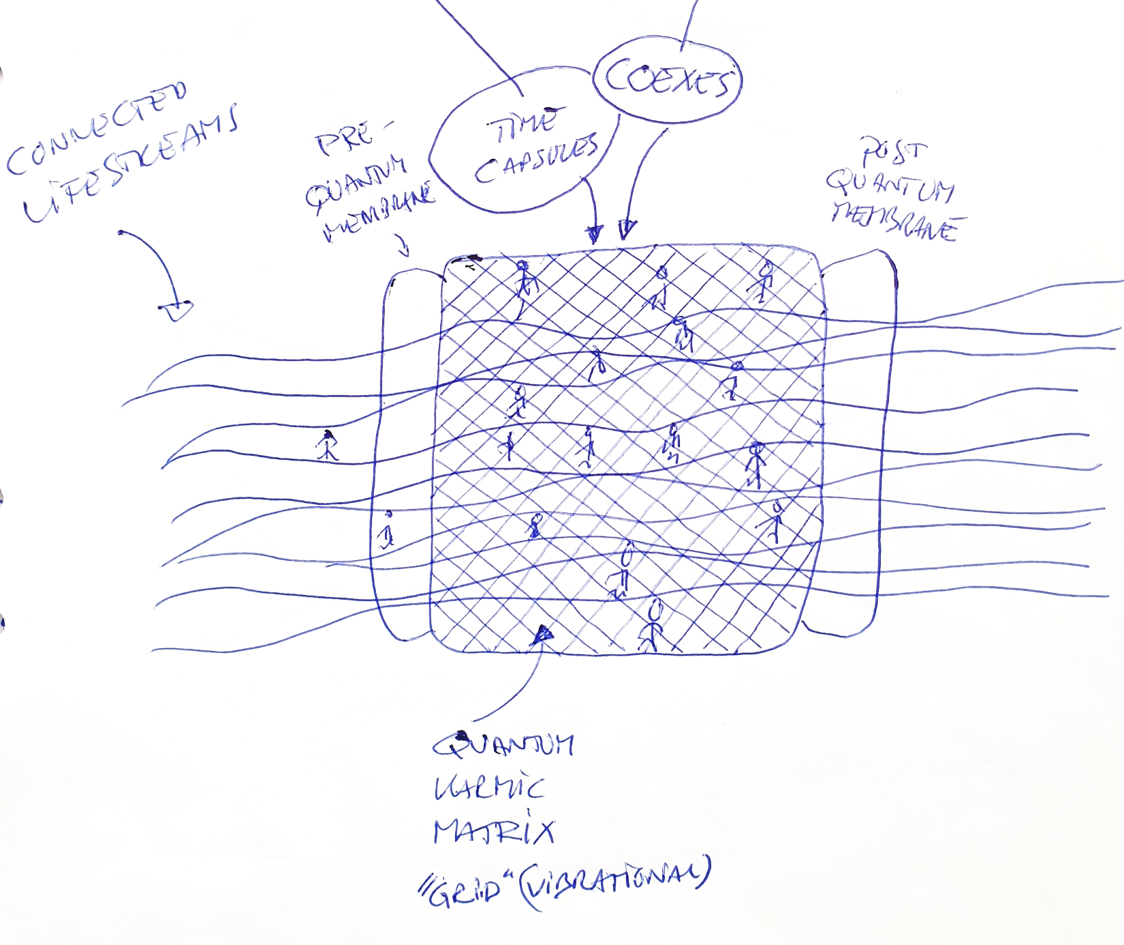 CONNECTED
LIFESTREAMS
PRE-
QUANTUM
MEMBRANE
TIME
CAPSULES
COEXES
POST
QUANTUM
MEMBRANE
QUANTUM
KARMIC
MATRIX
"GRID" (VIBRATIONAL)